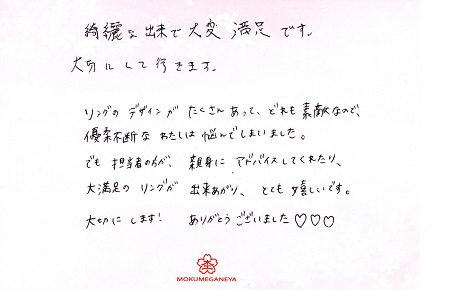 綺麗な出来で大変満足です。
大切にして行きます。
リングのデザインがたくさんあって、どれも素敵なので、
優柔不断なわたしは悩んでしまいました。
でも担当者の方が、親身にアドバイスしてくれたり、
大満足のリングが出来あがり、とても嬉しいです。
大切にします! ありがとうございました♡♡♡
MOKUMEGANEYA